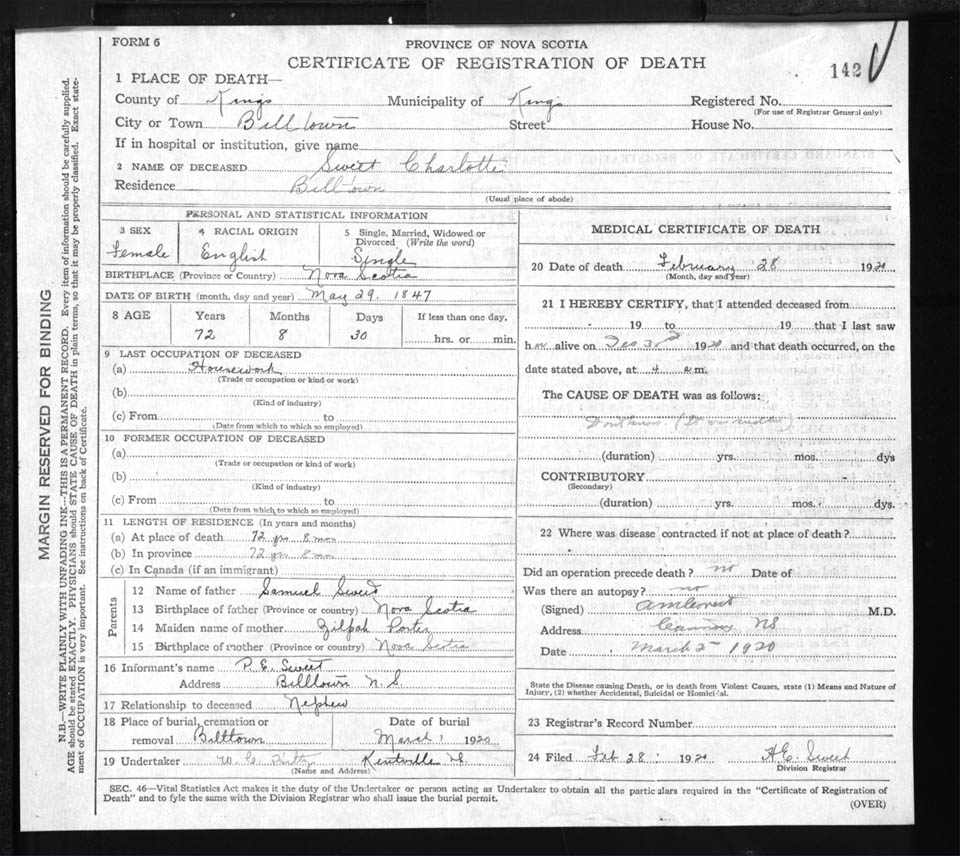 FORM 6
PROVINCE OF NOVA SCOTIA
CERTIFICATE OF REGISTRATION OF DEATH
142
1 PLACE OF DEATH—
County of Kings Municipality of Kings Registered No.
(For use of Registrar General only)
City or Town Billtown Street House No.
If in hospital or institution, give name
2 NAME OF DECEASED Sweet Charlotte
Residence Billtown
(Usual place of abode)
PERSONAL AND STATISTICAL INFORMATION
3 SEX 4 RACIAL ORIGIN 5 Single, Married, Widowed or Divorced (Write the word)
Female English Single
BIRTHPLACE (Province or Country) Nova Scotia
DATE OF BIRTH (month, day and year) May 29. 1847
8 AGE Years Months Days If less than one day,
72 8 30 hrs. or min.
9 LAST OCCUPATION OF DECEASED
(a) Housework
(Trade or occupation or kind or work)
(b)
(Kind of industry)
(c) From to
(Date from which to which so employed)
10 FORMER OCCUPATION OF DECEASED
(a)
(Trade or occupation or kind of work)
(b)
(Kind of industry)
(c) From to
(Date from which to which so employed)
11 LENGTH OF RESIDENCE (In years and months)
(a) At place of death 72 yrs 8 mon
(b) In province 72 yrs 8 mon
(c) In Canada (if an immigrant)
Parents
12 Name of father Samuel Sweet
13 Birthplace of father (Province or country) Nova Scotia
14 Maiden name of mother Zilpah Porter
15 Birthplace of mother (Province or country) Nova Scotia
16 Informant's name P. E. Sweet
Address Billtown N. S.
17 Relationship to deceased Nephew
18 Place of burial, cremation or removal Billtown Date of burial March 1 1920
19 Undertaker Kentville
(Name and Address)
MEDICAL CERTIFICATE OF DEATH
20 Date of death February 28 1920
(Month, day and year)
21 I HEREBY CERTIFY, that I attended deceased from
19 to 19 that I last saw
her alive on 1920 and that death occurred, on the
date stated above, at 4 a.m.
The CAUSE OF DEATH was as follows:
(duration) yrs. mos. dys
CONTRIBUTORY
(Secondary)
(duration) yrs. mos. dys.
22 Where was disease contracted if not at place of death?
Did an operation precede death? no Date of
Was there an autopsy? no
(Signed) M.D.
Address Canning NS
Date March 2 1920
State the Disease causing Death, or in death from Violent Causes, state (1) Means and Nature of
Injury, (2) whether Accidental, Suicidal or Homicidal.
23 Registrar's Record Number
24 Filed Feb 28 1920 Sweet
Division Registrar
SEC. 46—Vital Statistics Act makes it the duty of the Undertaker or person acting as Undertaker to obtain all the particulars required in the "Certificate of Registration of
Death" and to fyle the same with the Division Registrar who shall issue the burial permit.
(OVER)
MARGIN RESERVED FOR BINDING
N.B.—WRITE PLAINLY WITH UNFADING INK—THIS IS A PERMANENT RECORD. Every item of information should be carefully supplied.
AGE should be stated EXACTLY. PHYSICIANS should STATE CAUSE OF DEATH in plain terms, so that it may be properly classified. Exact state-
ment of OCCUPATION is very important. See instructions on back of Certificate.